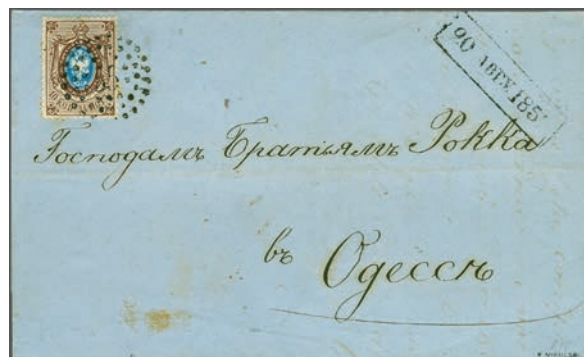 20 АВГУ. 185
Господамъ Братьямъ Рокка
въ Одессѣ